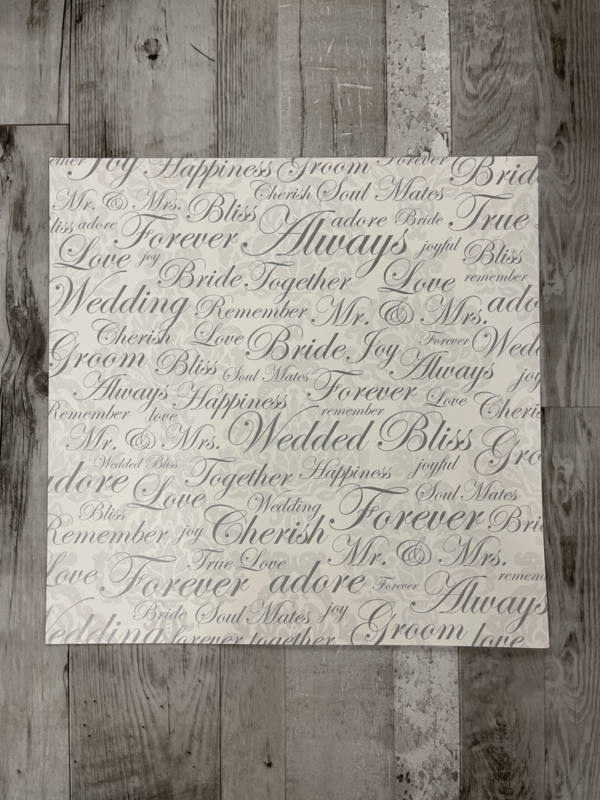 Joy Happiness Groom Forever Bride
Mr. & Mrs. Bliss Cherish Soul Mates True
adore Forever Always adore Bride joyful Bliss
Love joy Bride Together Love remember
Wedding Remember Mr. & Mrs. ado
Cherish Love Bride Joy Forever Wed
Groom Bliss Soul Mates Forever Always joy
Always Happiness remember Love Cheri
Remember love Wedded Bliss
Mr. & Mrs. Gro
Wedded Bliss Together Happiness joyful
adore Love Wedding Soul Mates
Bliss Forever Bri
Remember joy Cherish Mr. & Mrs.
Love True Love remem
Forever adore Forever Always
Bride Soul Mates joy
Wedding forever together Groom love